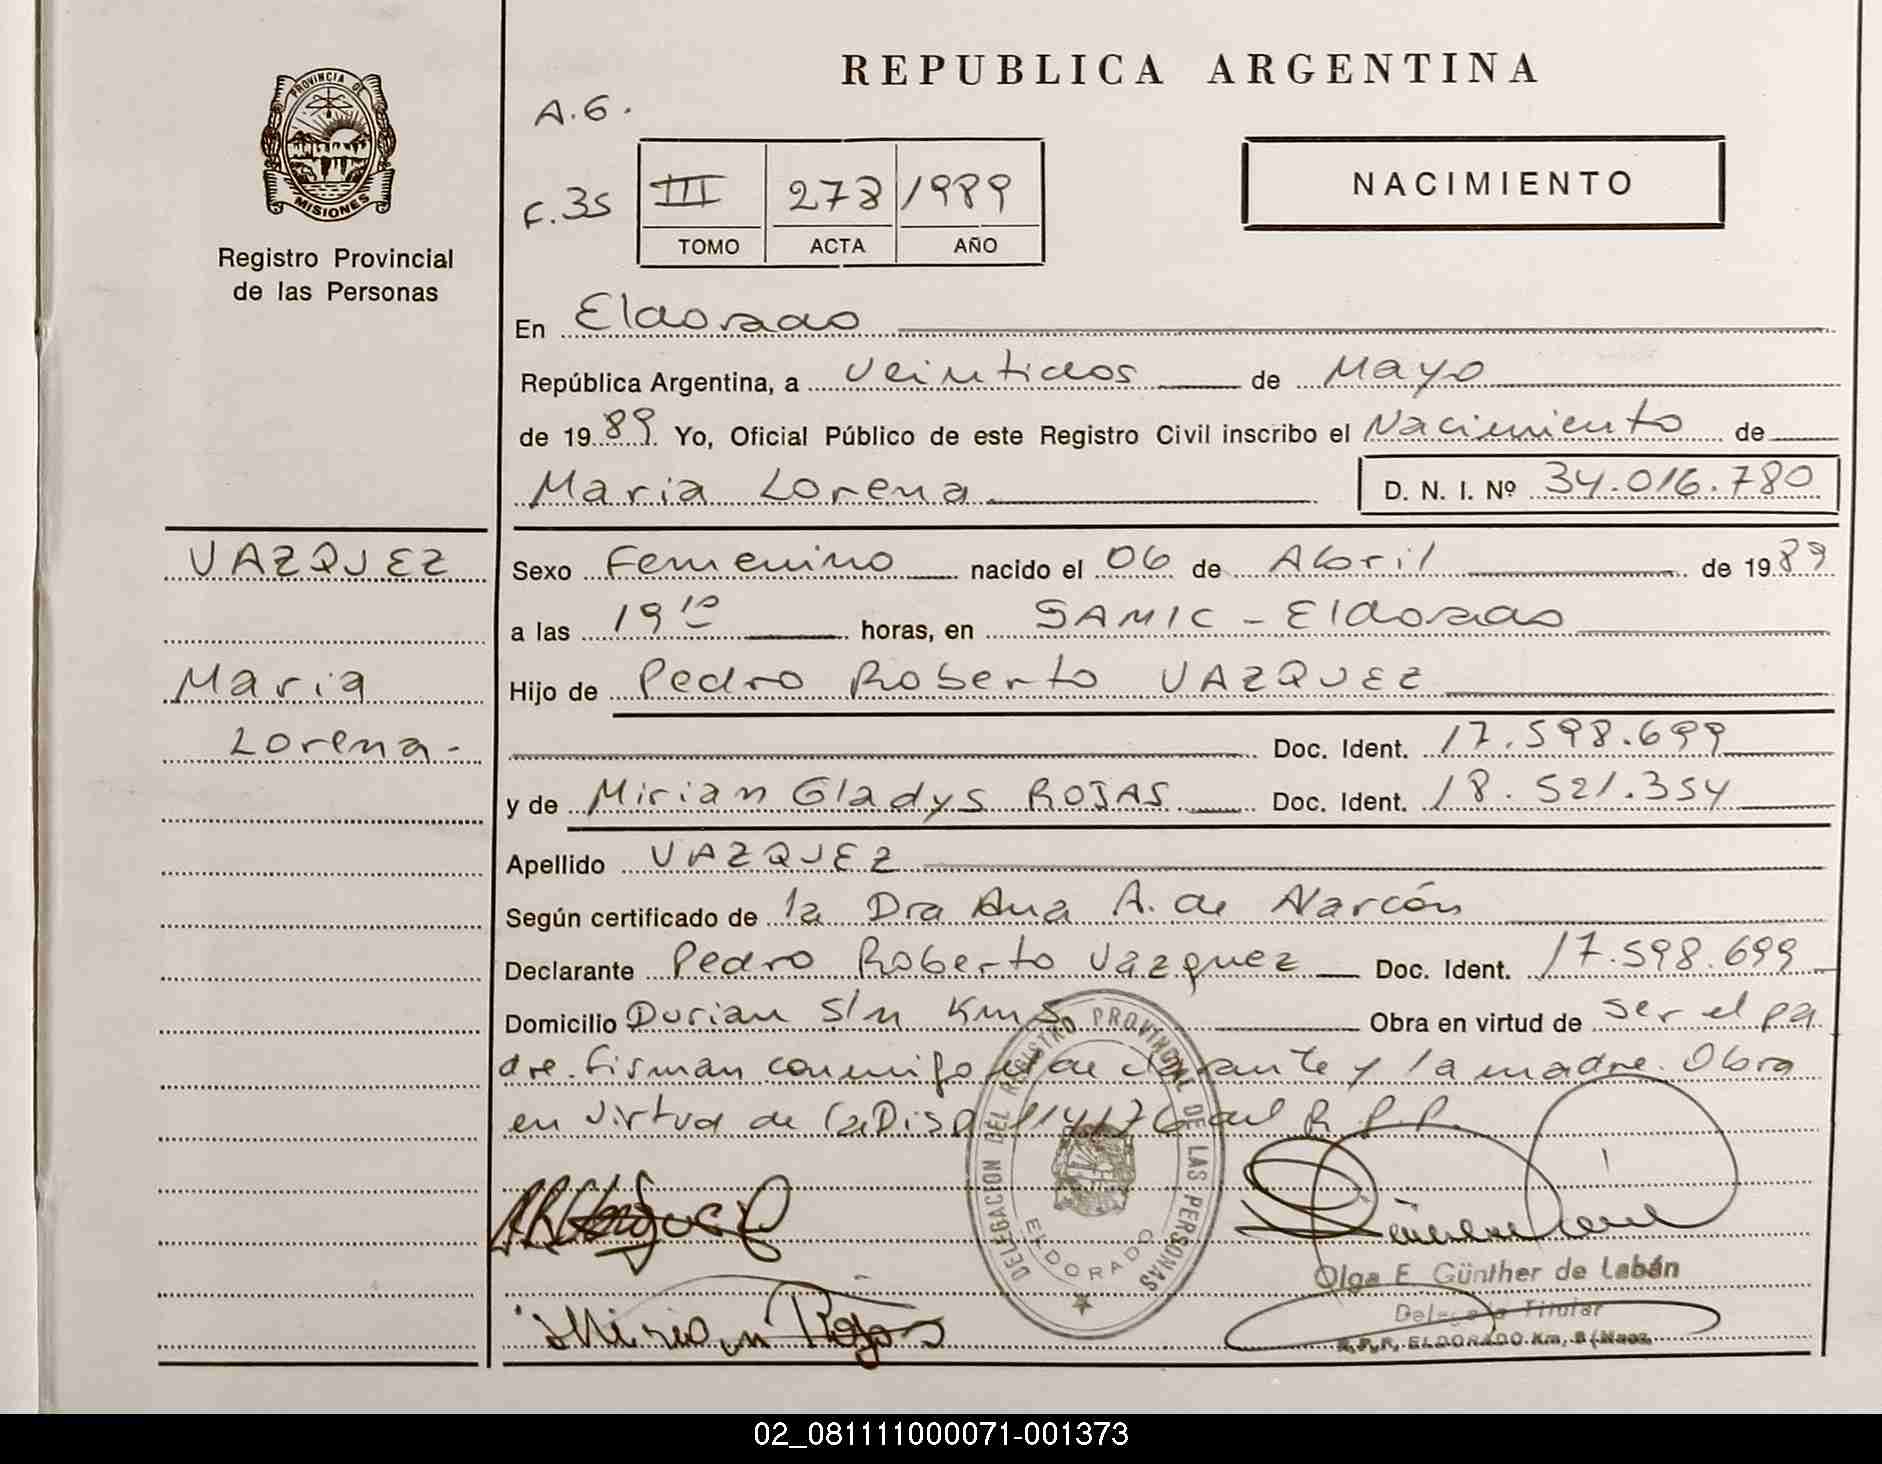 PROVINCIA DE
MISIONES
Registro Provincial
de las Personas
VAZQUEZ
Maria
Lorena-
REPUBLICA ARGENTINA
A.G.
F.35
III 273 1989
TOMO ACTA AÑO
NACIMIENTO
En Eldorado
República Argentina, a veintidos de Mayo
de 1989. Yo, Oficial Público de este Registro Civil inscribo el Nacimiento de
Maria Lorena D. N. I. Nº 34.016.780
Sexo Femenino nacido el 06 de Abril de 1989
a las 19 10 horas, en SAMIC - Eldorado
Hijo de Pedro Roberto VAZQUEZ
Doc. Ident. 17.598.699
y de Mirian Gladys ROJAS Doc. Ident. 18.521.354
Apellido VAZQUEZ
Según certificado de la Dra Ana A. de Alarcón
Declarante Pedro Roberto Vazquez Doc. Ident. 17.598.699
Domicilio Dorian S/n Km 5 Obra en virtud de ser el pa
dre. Firman conmigo el declarante y la madre. Obra
en virtud de la Disp 114/76 del R.P.P.
DELEGACION DEL REGISTRO PROVINCIAL DE LAS PERSONAS
ELDORADO
Olga E. Günther de Labán
Delegada Titular
R.P.R. ELDORADO Km. 9 (Mnes.
Mirian Rojas
02_081111000071-001373